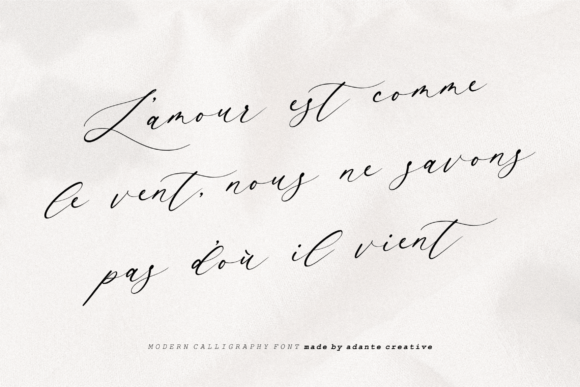 L'amour est comme
le vent, nous ne savons
pas d'où il vient
MODERN CALLIGRAPHY FONT made by adante creative